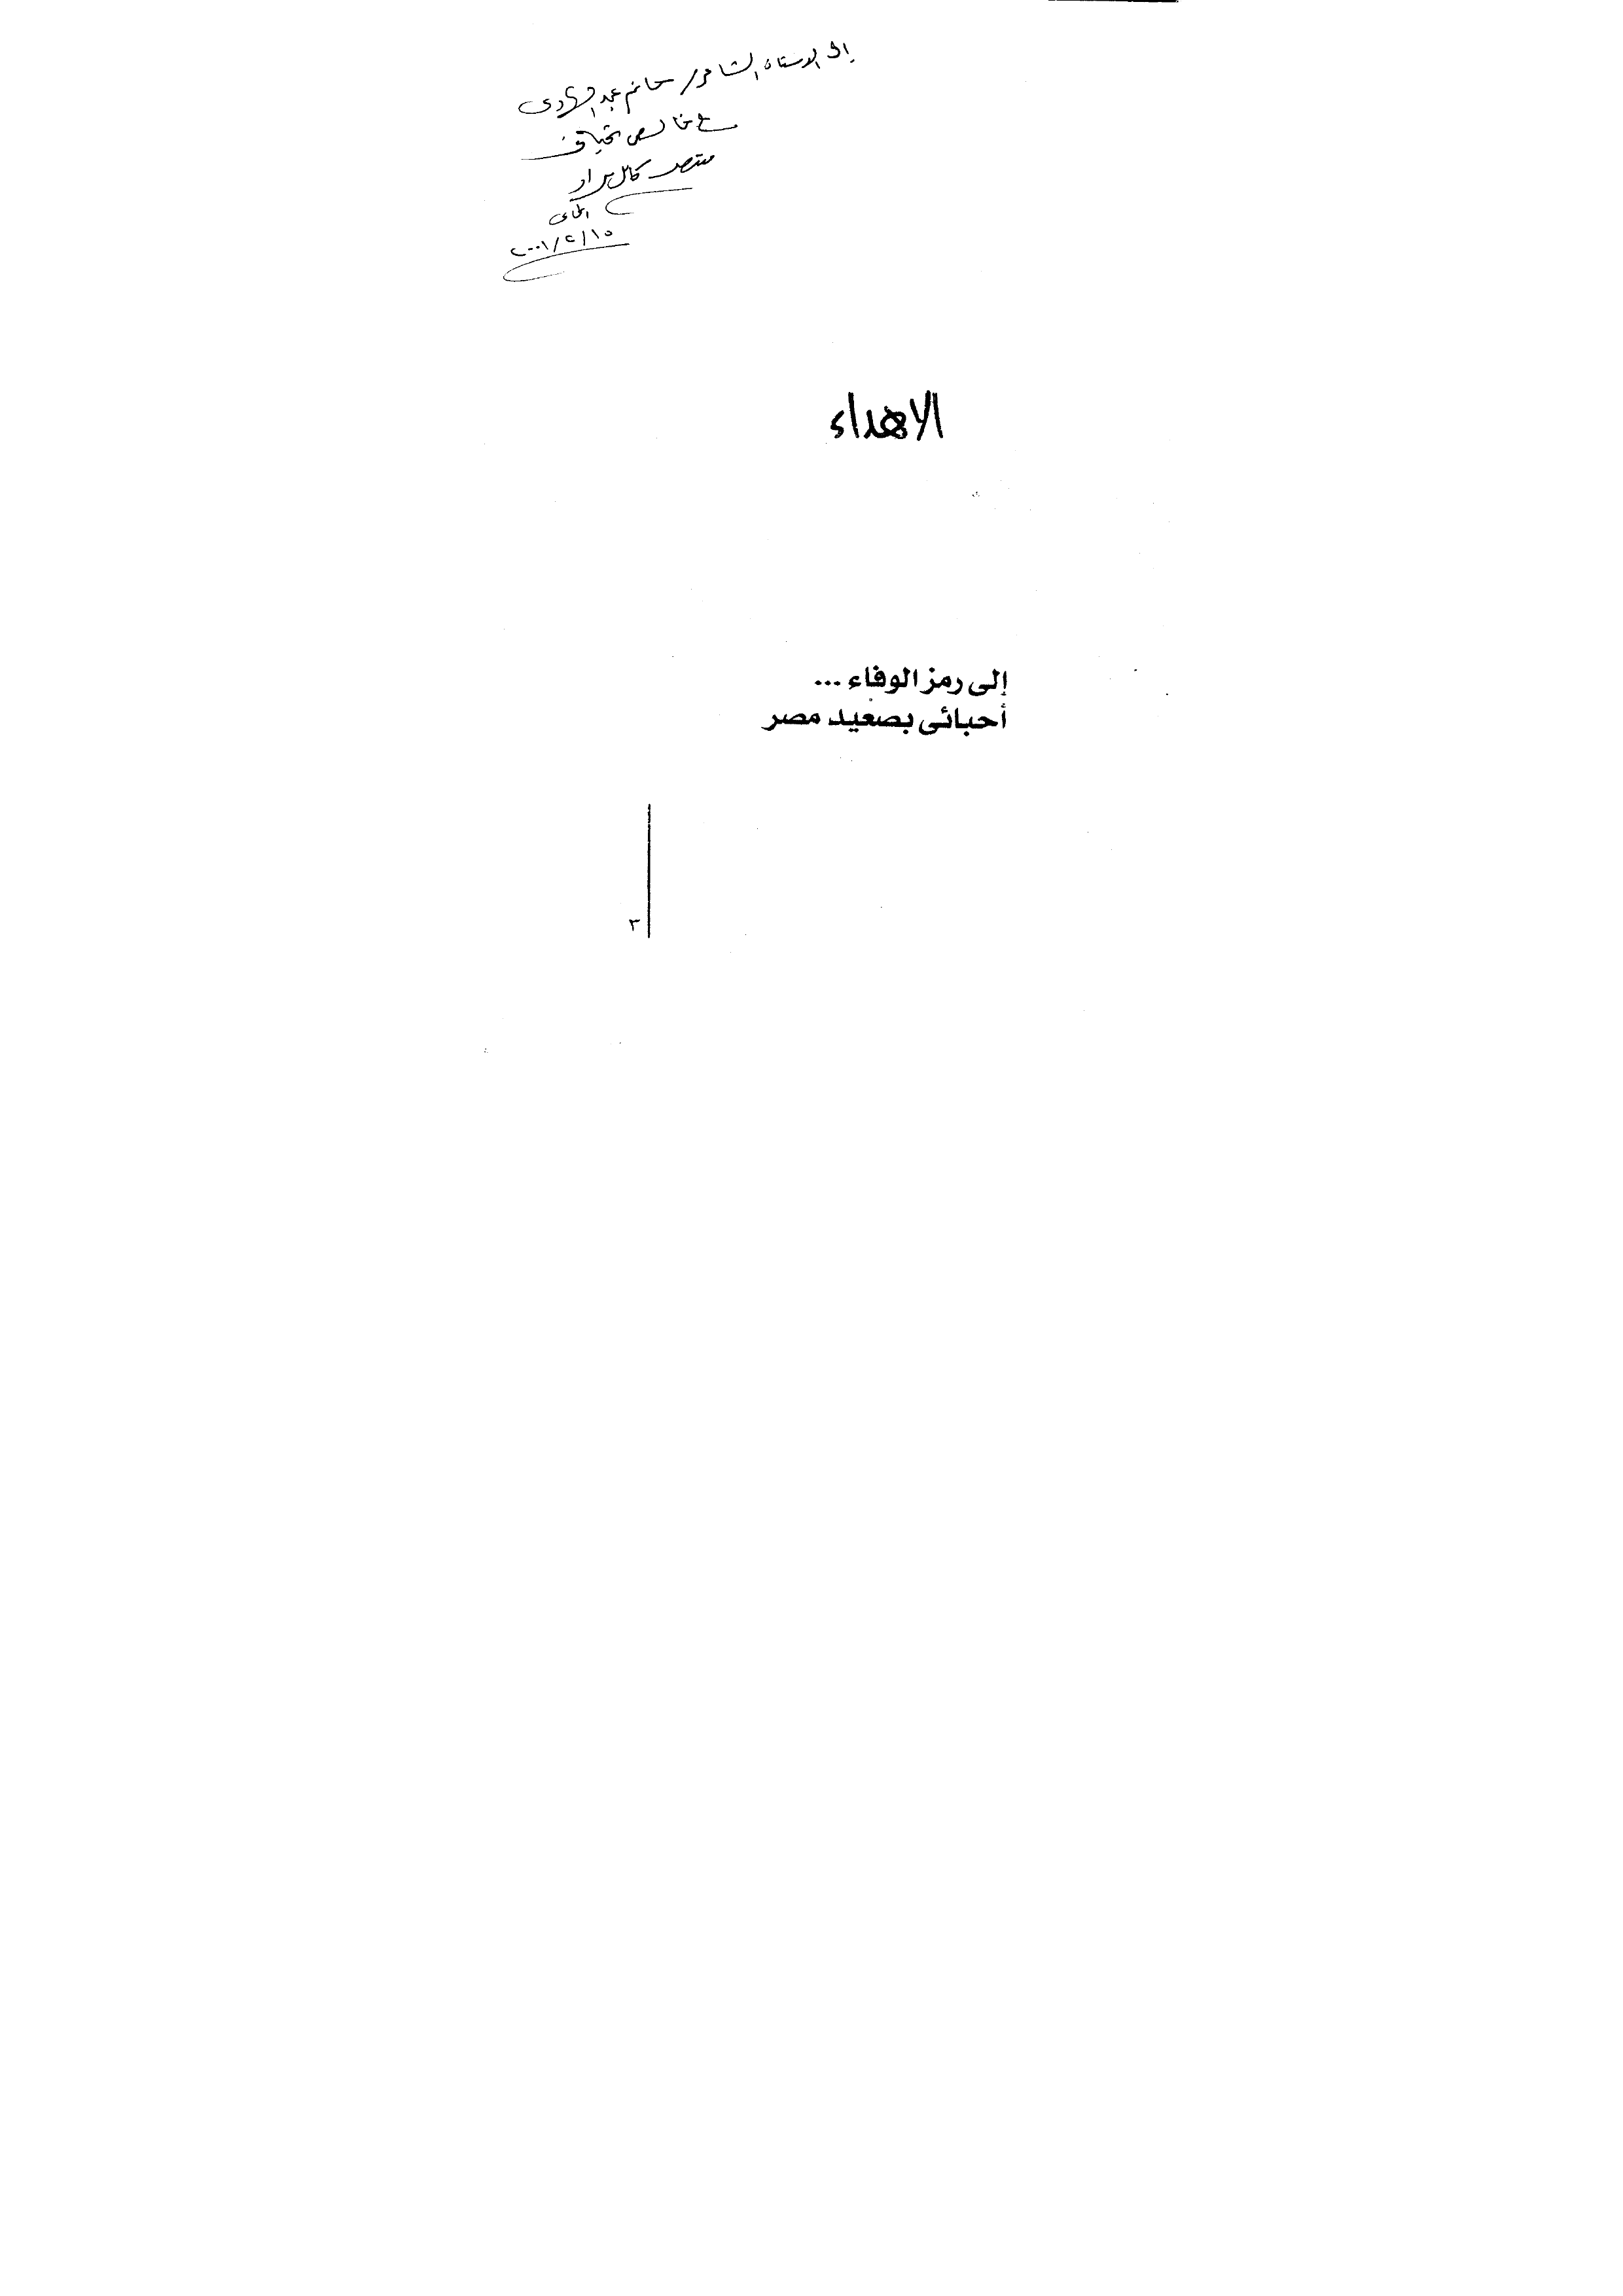 إلى الأستاذ الشاعر / حاتم عبد الهادى
مع خالص تحياتى
منتصر كامل مراد
المحامى
٢٠٠١/٢/١٥
الاهداء
إلى رمز الوفاء ...
أحبائى بصعيد مصر
٣